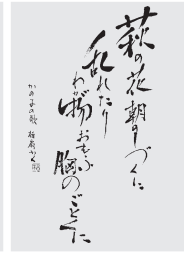 萩の花朝のしづくに
乱れたり
わが物おもふ
胸のごとくに
かの子の歌